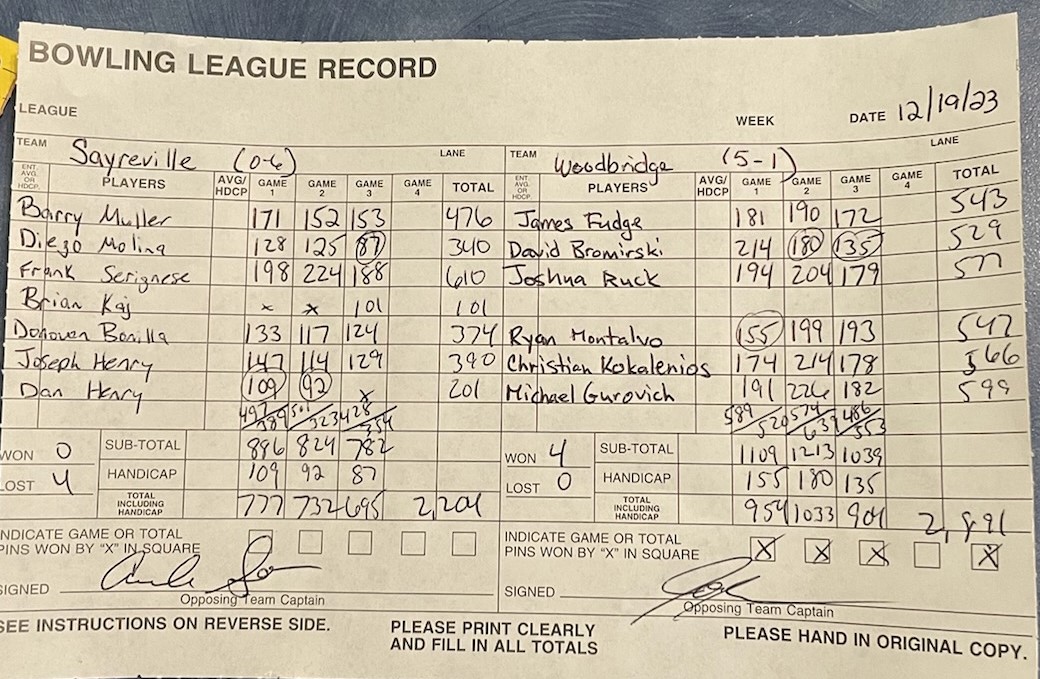 BOWLING LEAGUE RECORD
LEAGUE WEEK DATE 12/19/23
TEAM Sayreville (0-6) LANE TEAM Woodbridge (5-1) LANE
ENT. AVG. OR HDCP. PLAYERS AVG/HDCP GAME 1 GAME 2 GAME 3 GAME 4 TOTAL ENT. AVG. OR HDCP. PLAYERS AVG/HDCP GAME 1 GAME 2 GAME 3 GAME 4 TOTAL
Barry Muller 171 152 153 476 James Fudge 181 190 172 543
Diego Molina 128 125 87 340 David Bromirski 214 180 135 529
Frank Serignese 198 224 188 610 Joshua Ruck 194 204 179 577
Brian Kaj x x 101 101
Donovan Bonilla 133 117 124 374 Ryan Montalvo 155 199 193 547
Joseph Henry 147 114 129 390 Christian Kokalenios 174 214 178 566
Dan Henry 109 92 x 201 Michael Gurovich 191 226 182 599
497/389 501/323 428/354 589/520 574/639 486/553
WON 0 SUB-TOTAL 886 824 782 WON 4 SUB-TOTAL 1109 1213 1039
LOST 4 HANDICAP 109 92 87 LOST 0 HANDICAP 155 180 135
TOTAL INCLUDING HANDICAP 777 732 695 2,204 TOTAL INCLUDING HANDICAP 954 1033 904 2,891
INDICATE GAME OR TOTAL PINS WON BY "X" IN SQUARE INDICATE GAME OR TOTAL PINS WON BY "X" IN SQUARE X X X X
SIGNED SIGNED
Opposing Team Captain Opposing Team Captain
SEE INSTRUCTIONS ON REVERSE SIDE. PLEASE PRINT CLEARLY AND FILL IN ALL TOTALS PLEASE HAND IN ORIGINAL COPY.